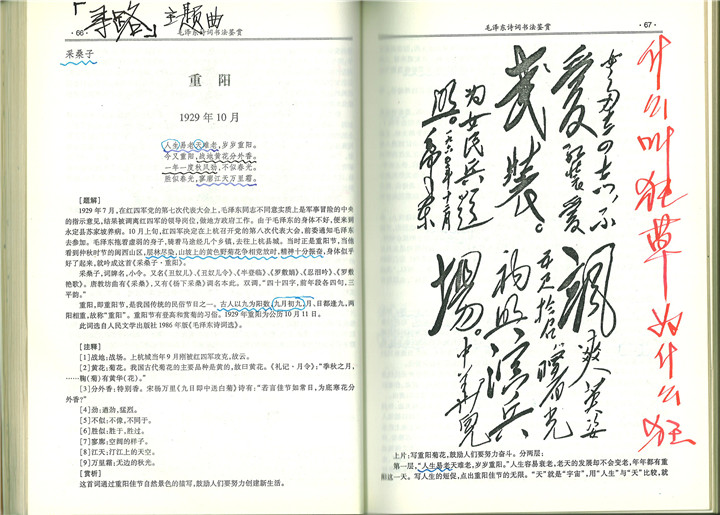 「寻略」主题曲
·66·
毛泽东诗词书法鉴赏
采桑子
重阳
1929年10月
人生易老天难老,岁岁重阳。
今又重阳,战地黄花分外香。
一年一度秋风劲,不似春光。
胜似春光,寥廓江天万里霜。
[题解]
1929年7月,在红四军党的第七次代表大会上,毛泽东同志不同意实质上是军事冒险的中央
的指示意见,结果被调离红四军的领导岗位,做地方政府工作。由于毛泽东的身体不好,便来到
永定县苏家坡养病。10月上旬,红四军决定在上杭召开的第八次代表大会,前委通知毛泽东
去参加。毛泽东拖着虚弱的身子,骑着马途经几个乡镇,去往上杭县城。当时正是重阳节,当他
看到仲秋时节的闽西山区,层林尽染,山坡上的黄色野菊花争相竞放时,精神十分振奋,身体似乎
好了起来,就吟成这首《采桑子·重阳》。
采桑子,词牌名,小令。又名《丑奴儿》、《丑奴儿令》、《半登临》、《罗敷媚》、《忍泪吟》、《罗敷
艳歌》。唐教坊曲有《采桑》,又有《杨下采桑》调名本此。双调,“四十四字,前年段各四句,三
平韵。”
重阳,即重阳节,是我国传统的民俗节日之一。古人以九为阳数,九月初九,月、日都逢九,两
阳相重,故称“重阳”。重阳节有登高和赏菊的习俗。1929年重阳为公历10月11日。
此词选自人民文学出版社1986年版《毛泽东诗词选》。
[注释]
[1]战地:战场。上杭城当年9月刚被红四军攻克,故云。
[2]黄花:菊花。我国古代菊花的主要品种是黄的,故曰黄花。《礼记·月令》:“季秋之月,
……鞠(菊)有黄华(花)。”
[3]分外香:特别香。宋杨万里《九日即中送白菊》诗有:“若言佳节如常日,为底寒花分
外香?”
[4]劲:遒劲,猛烈。
[5]不似:不像,不同于。
[6]胜似:胜于,胜过。
[7]寥廓:空阔的样子。
[8]江天:汀江上的天空。
[9]万里霜:无边的秋光。
[赏析]
这首词通过重阳佳节自然景色的描写,鼓励人们要努力创建新生活。
毛泽东诗词书法鉴赏
·67·
什么叫狂草 为什么狂
飒爽英姿
五尺枪 曙光
初照演兵
场。中华儿
女多奇志 不
爱红装爱
武装。
为女民兵题
照。
毛泽东
上片:写重阳菊花,鼓励人们要努力奋斗。分两层:
第一层,“人生易老天难老,岁岁重阳。”人生容易衰老,老天的发展却不会变老,年年都有重
阳这一天。写人生的短促,点出重阳佳节的无限。“天”就是“宇宙”,用“人生”与“天”比较,就